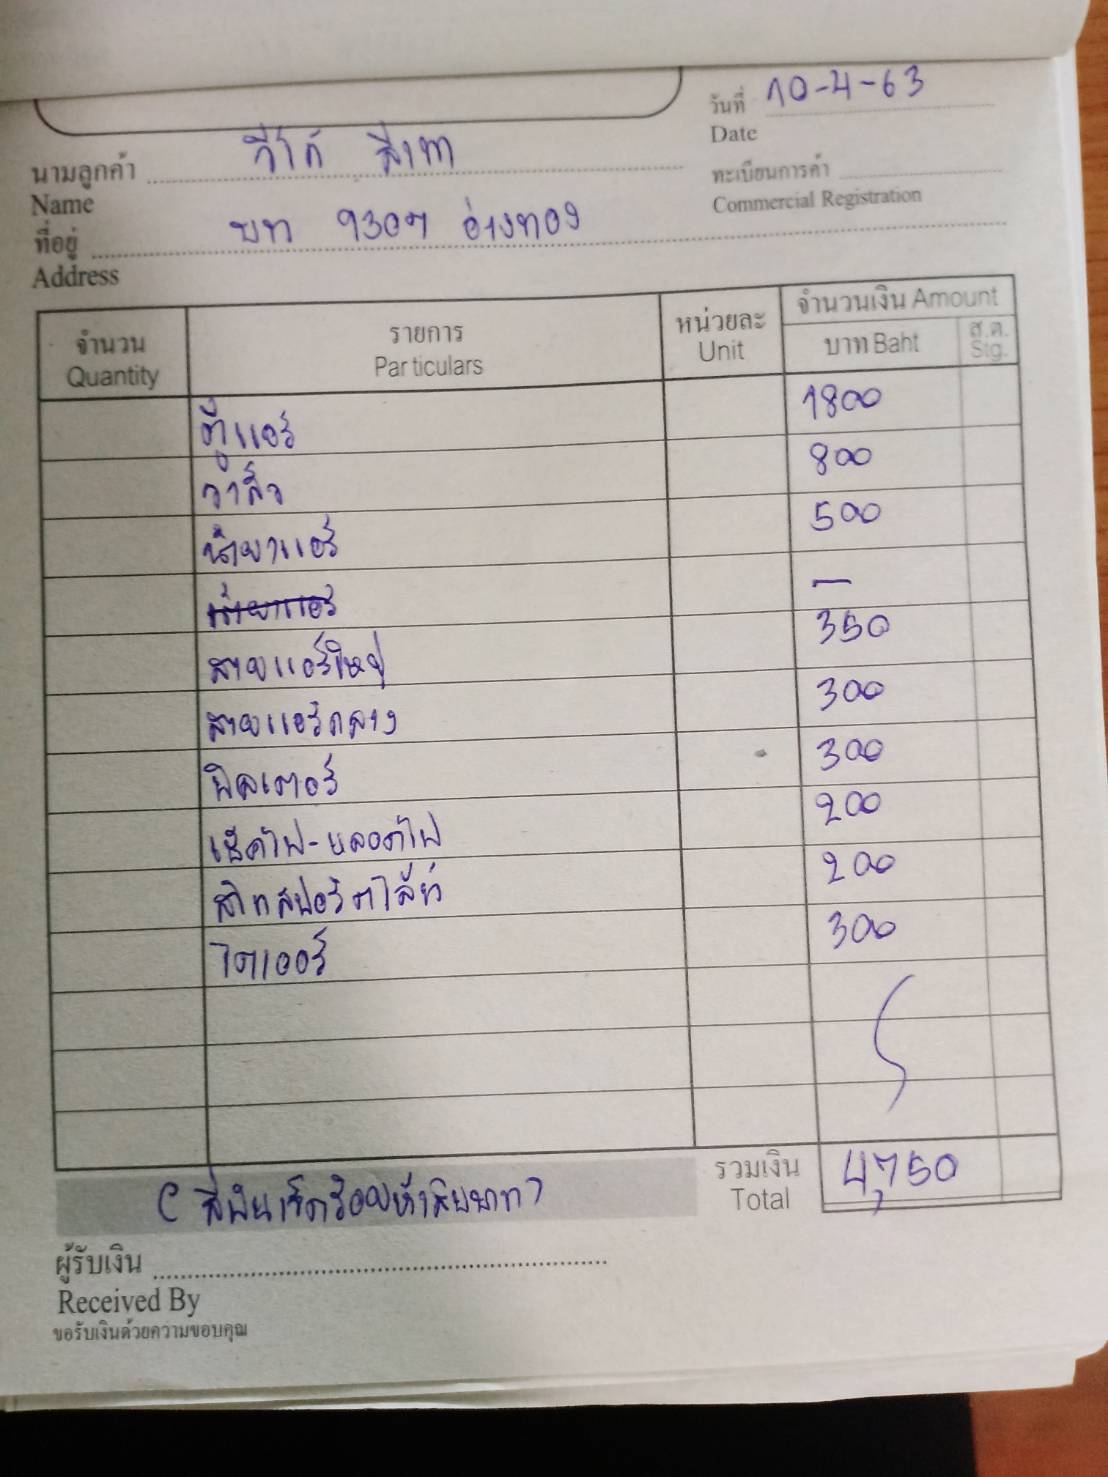 วันที่ 10-4-63
Date
นามลูกค้า วีโก้ สีเทา
Name
ทะเบียนการค้า
Commercial Registration
ที่อยู่ บท 9307 อ่างทอง
Address
จำนวน รายการ หน่วยละ จำนวนเงิน Amount
Quantity Particulars Unit บาท Baht ส.ต. Stg.
ตู้แอร์ 1800
วาล์ว 800
น้ำยาแอร์ 500
น้ำยาแอร์ —
สายแอร์ใหญ่ 350
สายแอร์กลาง 300
ฟิลเตอร์ 300
เช็คไฟ-หลอดไฟ 200
สปอร์ตไล้ท์ 200
ไดเออร์ 300
รวมเงิน 4,750
Total
(สี่พันเจ็ดร้อยห้าสิบบาท)
ผู้รับเงิน
Received By
ขอรับเงินด้วยความขอบคุณ